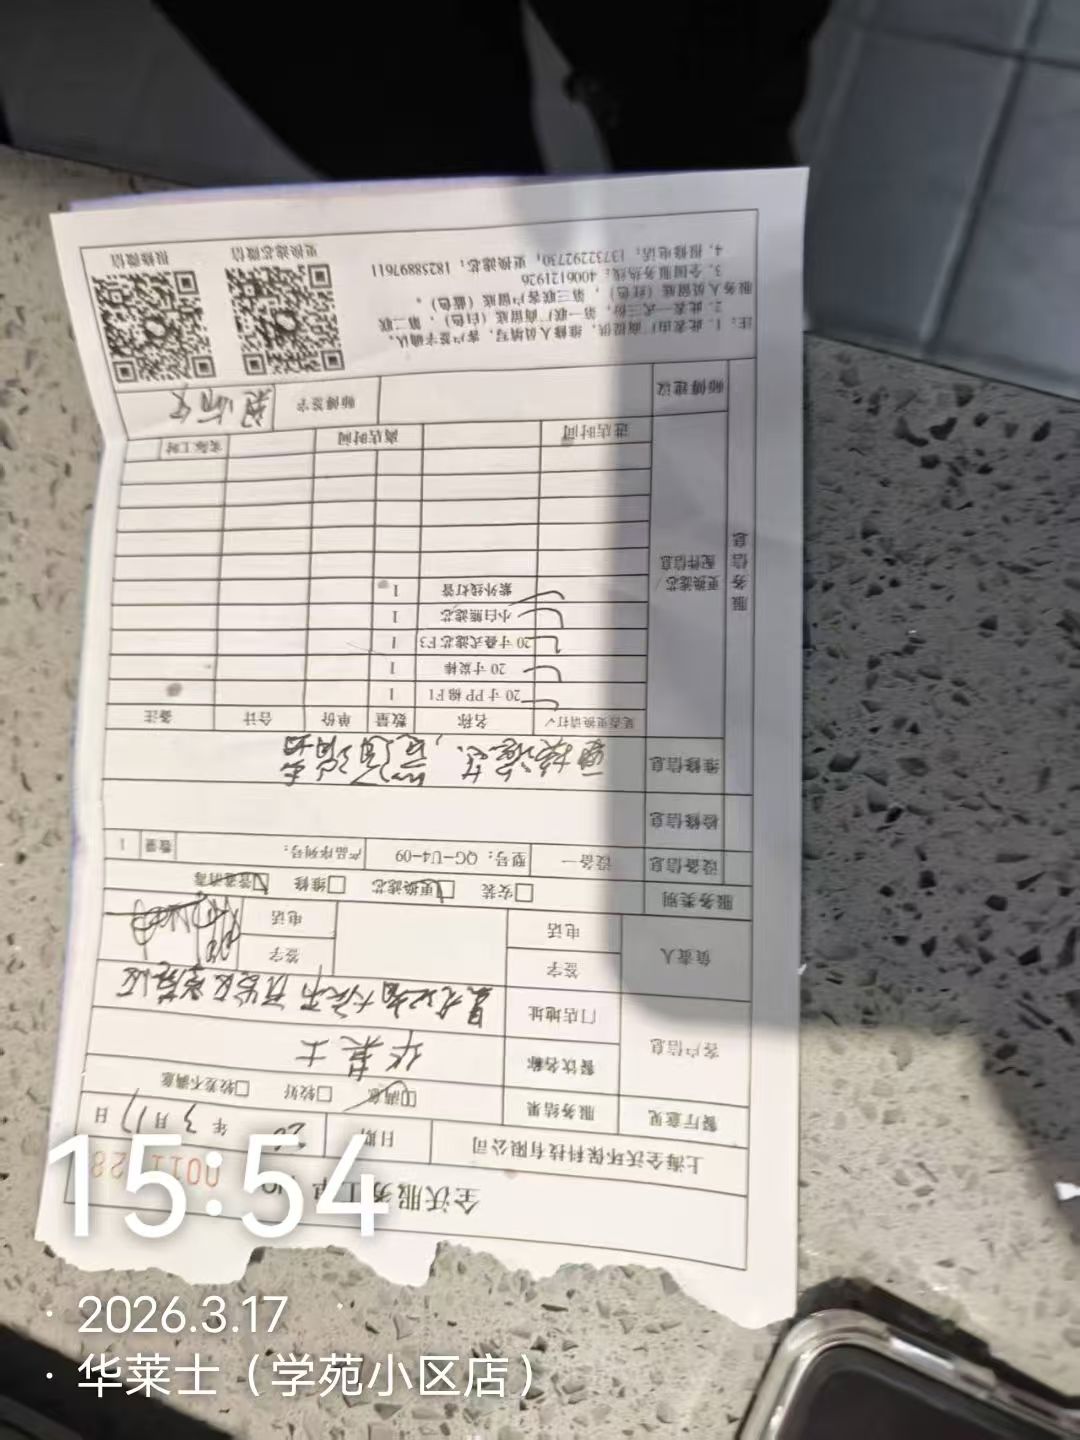 全沃服务工单 NO
0011128
上海全沃环保科技有限公司 日期 20 年 3 月 17 日
餐厅意见 服务结果 满意 较好 较差不满意
客户信息 餐饮名称 华莱士
门店地址
负责人 签字 签字
电话 电话
服务类别 安装 更换滤芯 维修 管道消毒
设备信息 设备一 型号：QG-U4-09 产品序列号： 数量 1
检修信息
维修信息 更换滤芯，管道消毒
服务信息
更换滤芯/配件信息
是否更换请打✓ 名称 数量 单价 合计 备注
20寸PP棉F1 1
20寸炭棒 1
20寸叠式滤芯F3 1
小白熊滤芯 1
紫外线灯管 1
进店时间 离店时间 实际工时
师傅建议 师傅签字
注：1. 此表由厂商提供，维修人员填写，客户签字确认。
2. 此表一式三份，第一联厂商留底（白色），第二联
服务人员留底（红色），第三联客户留底（蓝色）。
3. 全国服务热线：4006121926
4. 报修电话：13732292730；更换滤芯：18258897611
更换滤芯微信 报修微信
15:54
· 2026.3.17
· 华莱士（学苑小区店）